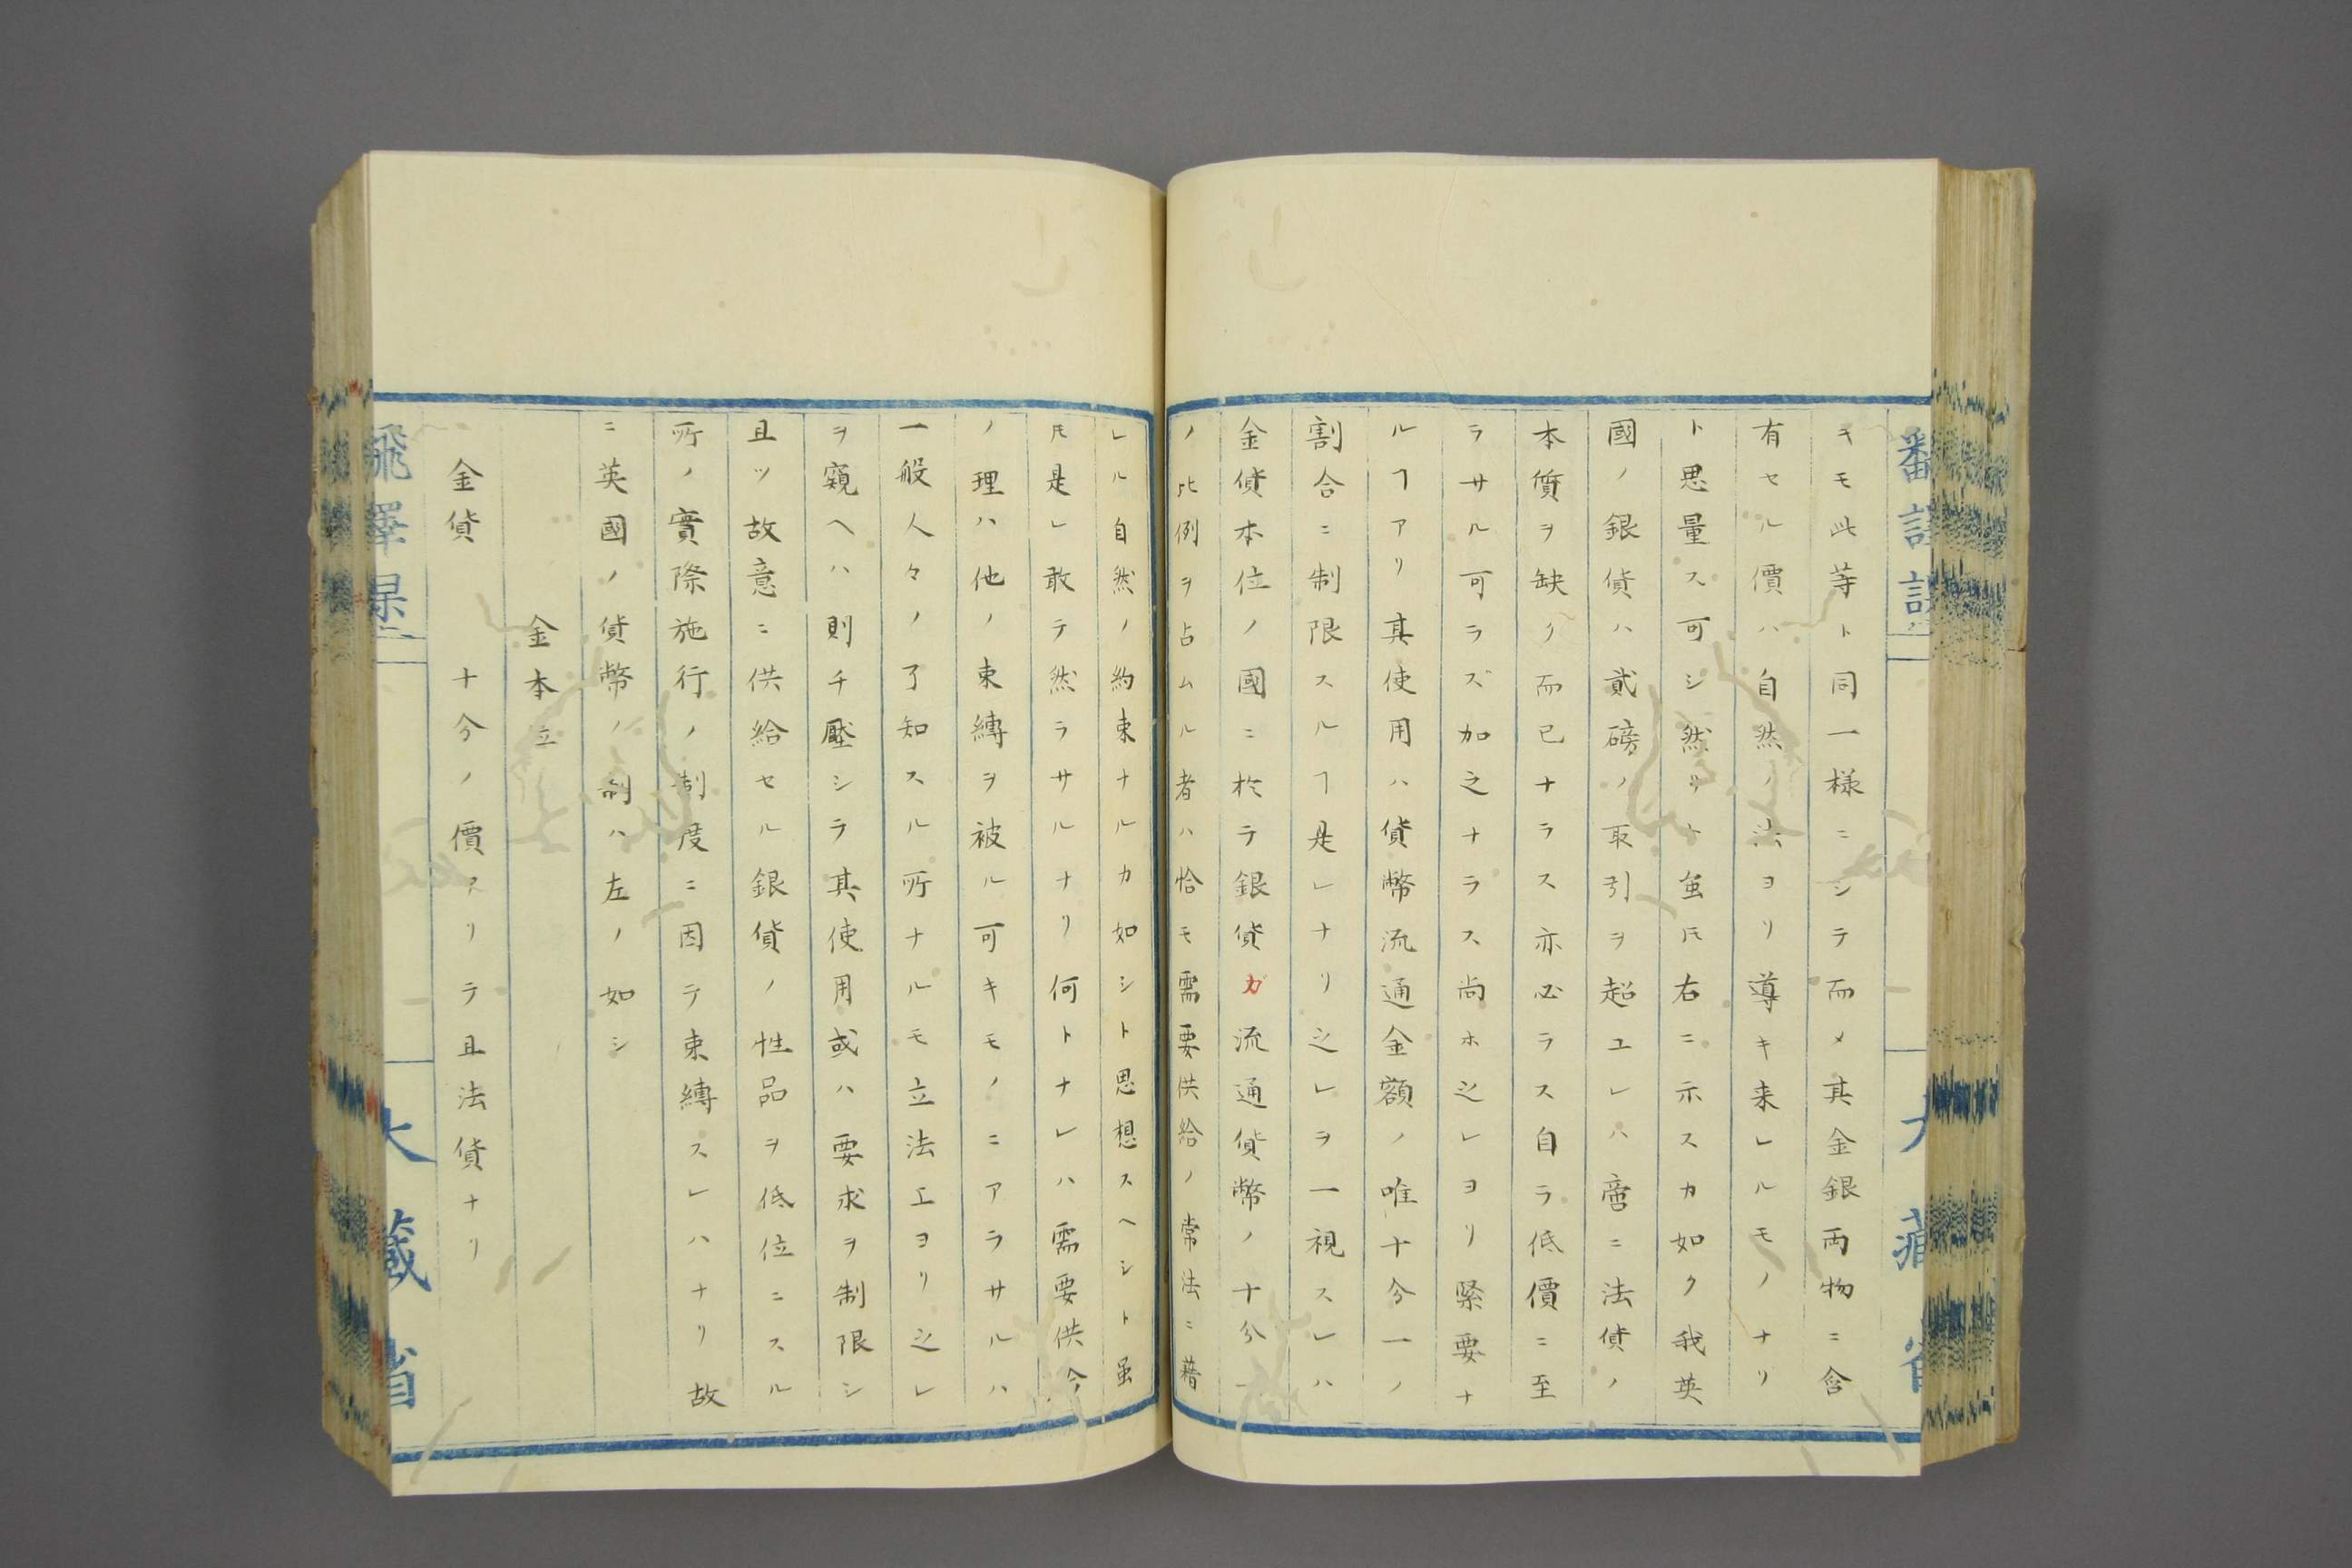 キモ此等ト同一様ニシテ而メ其金銀両物ニ含
有セル價ハ自然ノ法ヨリ導キ来レルモノナリ
ト思量ス可シ然リト虽𪜈右ニ示スカ如ク我英
國ノ銀貨ハ貳磅ノ取引ヲ超ユレハ啻ニ法貨ノ
本質ヲ缺ク而已ナラス亦必ラス自ラ低價ニ至
ラサル可ラズ加之ナラス尚ホ之レヨリ緊要ナ
ルヿアリ其使用ハ貨幣流通金額ノ唯十分一ノ
割合ニ制限スルヿ是レナリ之レヲ一視スレハ
金貨本位ノ國ニ於テ銀貨ガ流通貨幣ノ十分一
ノ比例ヲ占ムル者ハ恰モ需要供給ノ常法ニ藉
レル自然ノ約束ナルカ如シト思想スヘシト虽
𪜈是レ敢テ然ラサルナリ何トナレハ需要供今
ノ理ハ他ノ束縛ヲ被ル可キモノニアラサルハ
一般人々ノ了知スル所ナルモ立法上ヨリ之レ
ヲ窺ヘハ則チ壓シテ其使用或ハ要求ヲ制限シ
且ツ故意ニ供給セル銀貨ノ性品ヲ低位ニスル
所ノ實際施行ノ制度ニ因テ束縛スレハナリ故
ニ英國ノ貨幣ノ制ハ左ノ如シ
金本立
金貨 十分ノ價アリテ且法貨ナリ
大藏省